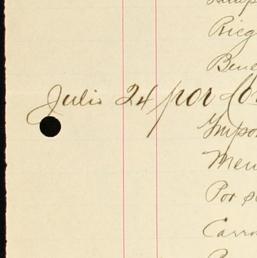 Rieg
Bene
Julio 24 por Co
Impor
Men
Por s
Carr